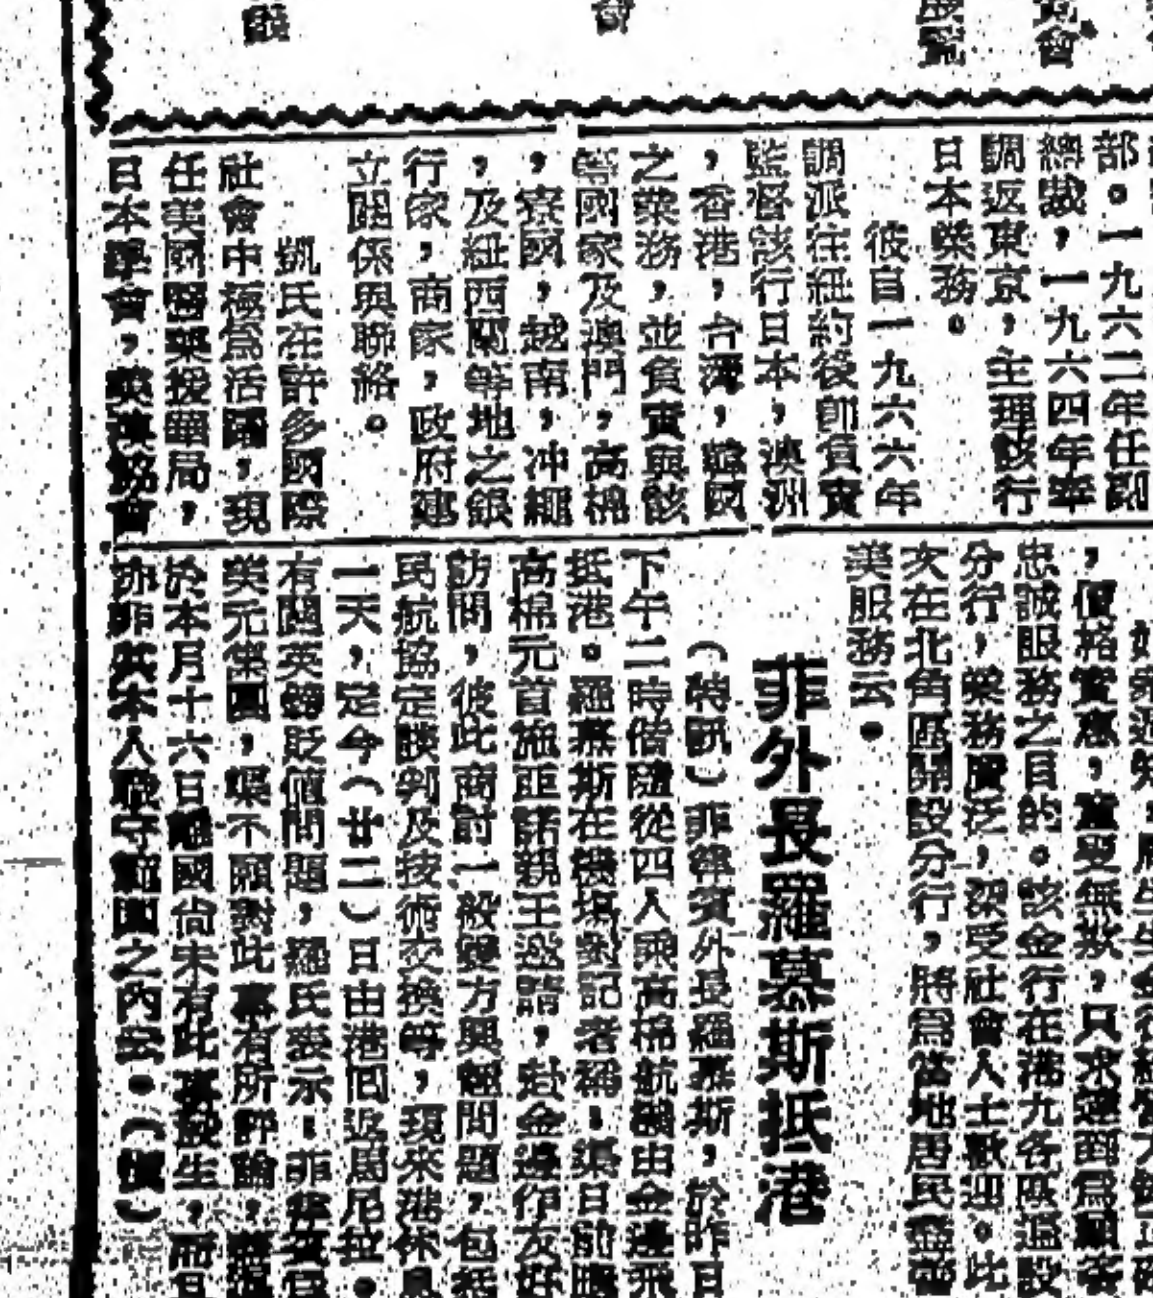 展覧
部。一九六二年任副
總裁，一九六四年奉
調返東京，主理該行
日本業務。
彼自一九六六年
調派往紐約後即負責
監督該行日本，澳洲
，香港，台灣，韓國
之業務，並負責與該
等國家及澳門，高棉
，寮國，越南，冲繩
，及紐西蘭等地之銀
行家，商家，政府建
立關係與聯絡。
凱氏在許多國際
社會中極為活躍，現
任美國醫藥援華局，
日本學會，英漢協會
，價格實惠，童叟無欺，只求達到為顧客
忠誠服務之目的。該金行在港九各區遍設
分行，業務廣泛，深受社會人士歡迎。此
次在北角區開設分行，將為當地居民
美服務云。
菲外長羅慕斯抵港
（特訊）菲律賓外長羅慕斯，於昨日
下午二時偕隨從四人乘高棉航機由金邊飛
抵港。羅慕斯在機塲對記者稱：渠日前應
高棉元首施亞諾親王邀請，赴金邊作友好
訪問，彼此商討一般雙方興趣問題，包括
民航協定談判及技術交換等，現來港休息
一天，定今（廿二）日由港囘返馬尼拉。
有關英鎊貶值問題，羅氏表示：菲律賓官
美元集團，渠不願對此事有所評論，
於本月十六日離國尚未有此事發生，而且
亦非其本人職守範圍之內云。（慎）